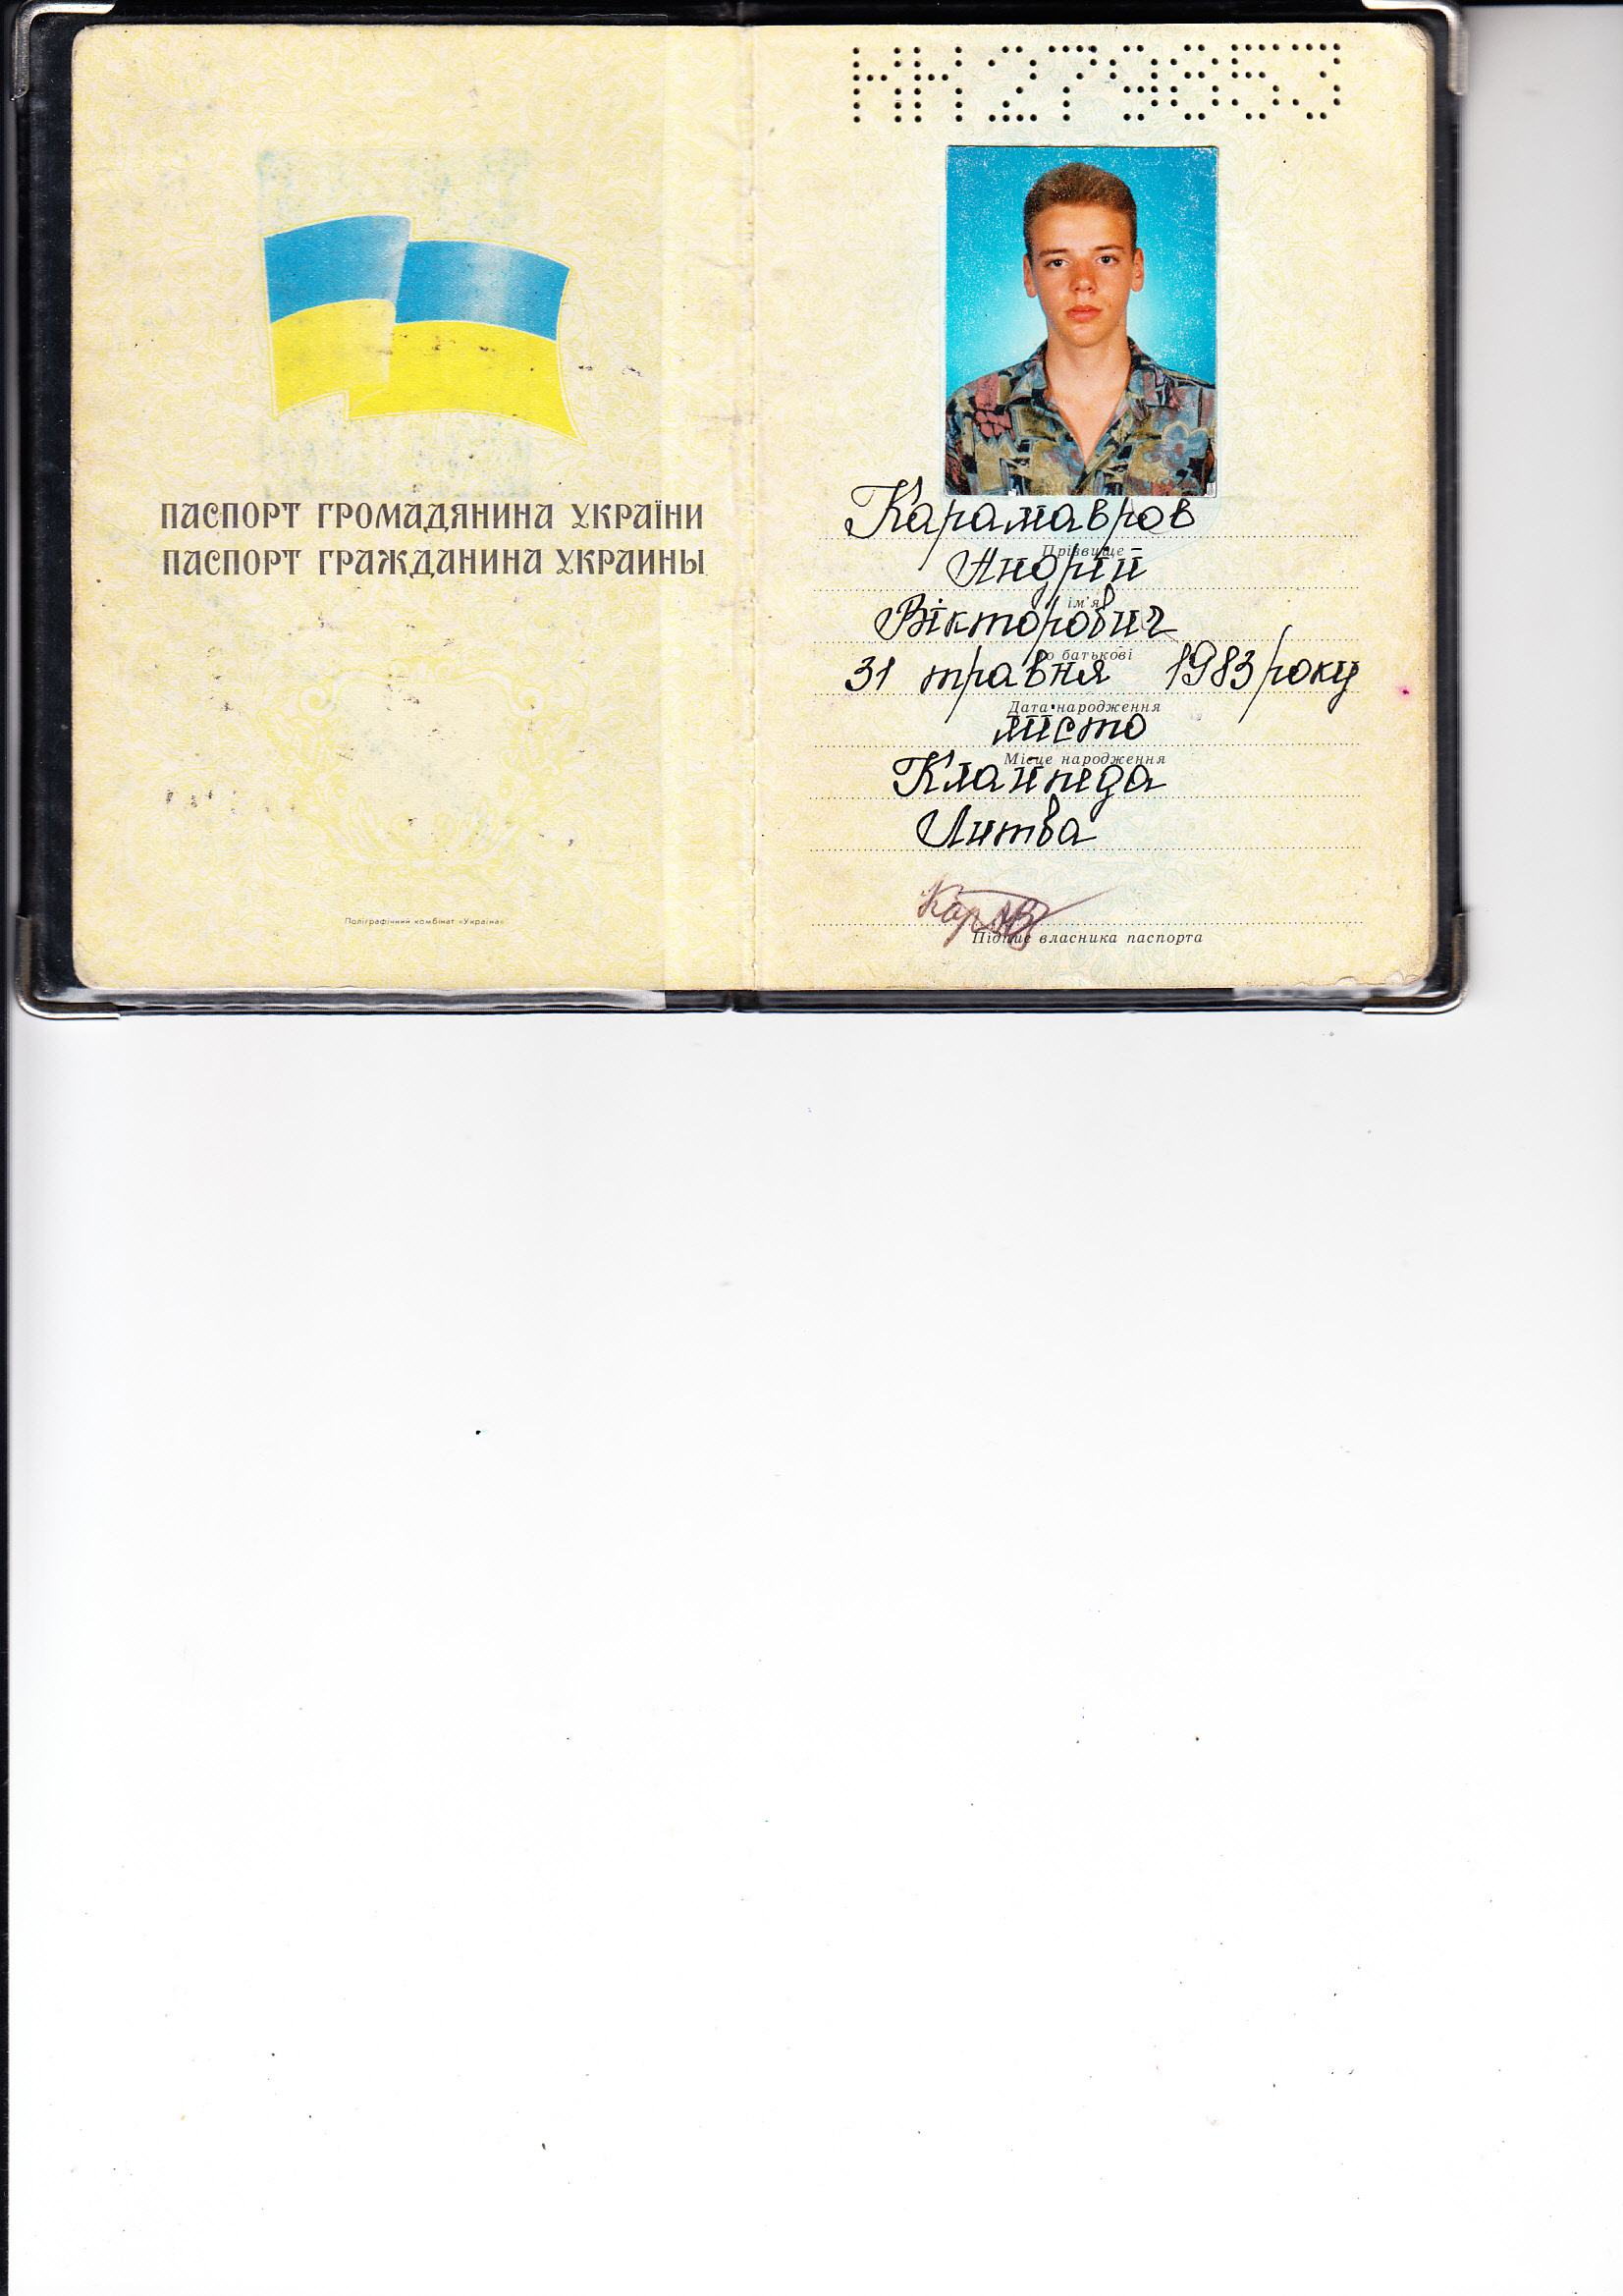 ПАСПОРТ ГРОМАДЯНИНА УКРАЇНИ
ПАСПОРТ ГРАЖДАНИНА УКРАИНЫ
Поліграфічний комбінат «Україна»
НН279853
Карамавров
Прізвище
Андрій
ім'я
Вікторович
по батькові
31 травня 1983 року
Дата народження
місто
Місце народження
Клайпеда
Литва
Підпис власника паспорта